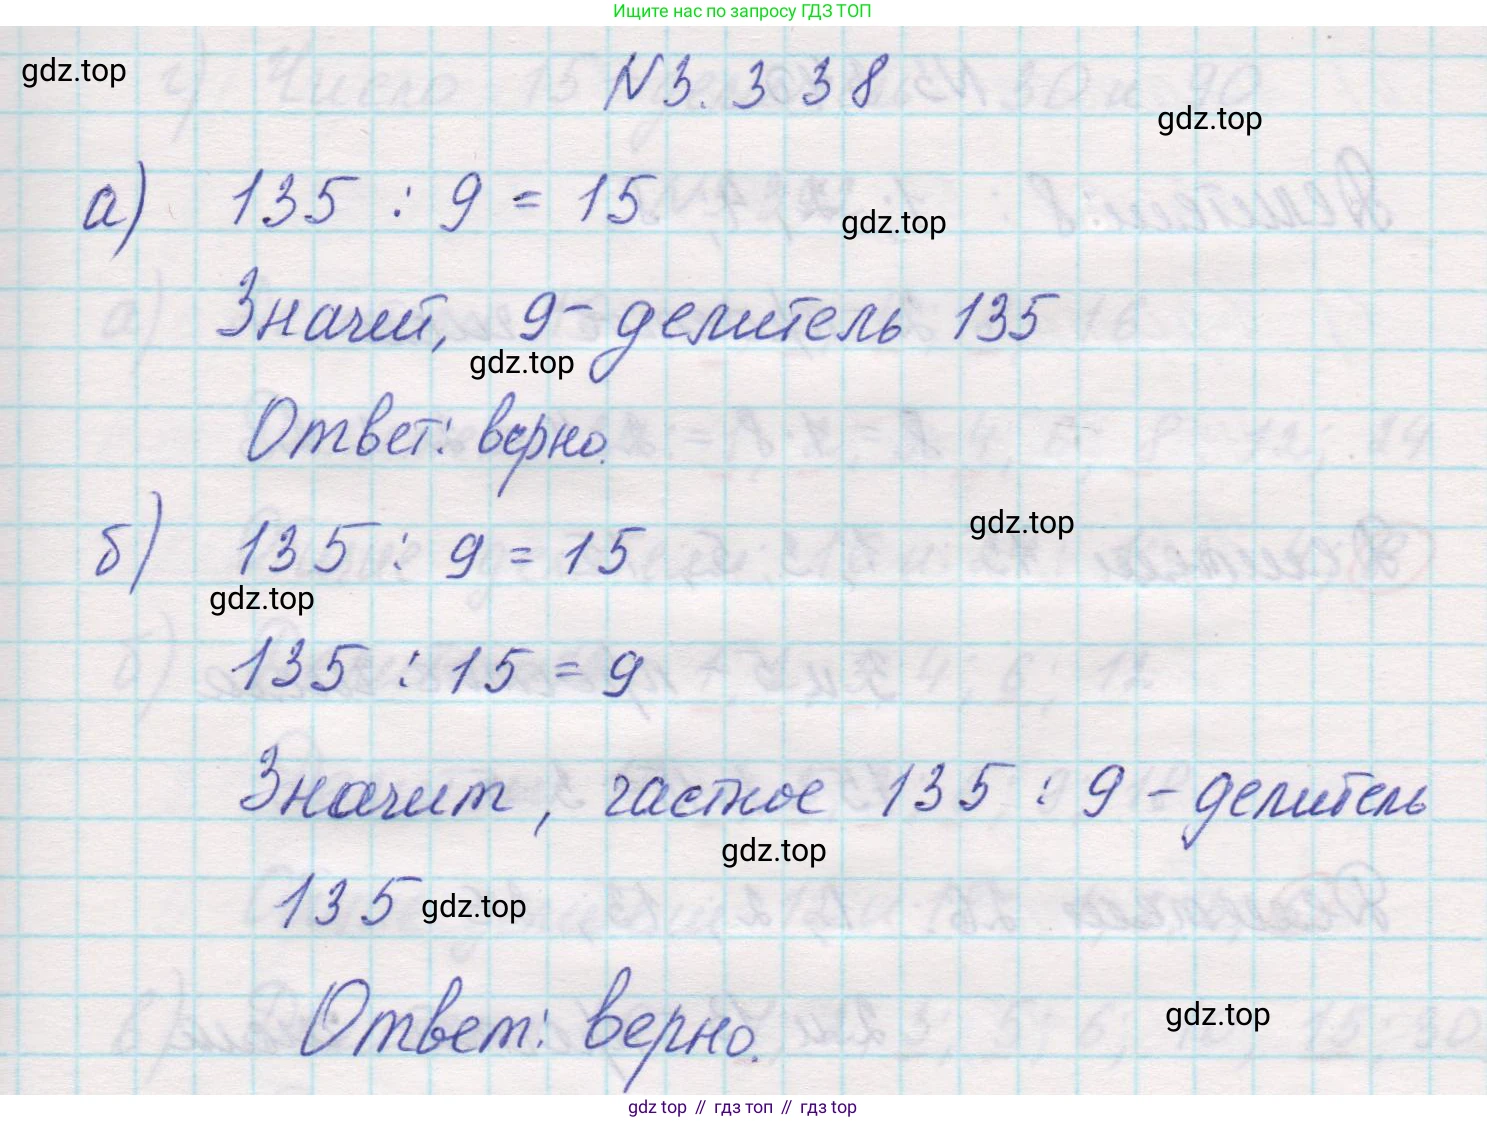 Ищите нас по запросу ГДЗ ТОП
gdz.top
N3.338
gdz.top
а) 135 : 9 = 15
gdz.top
Значит, 9 - делитель 135
gdz.top
Ответ: верно.
gdz.top
б) 135 : 9 = 15
gdz.top
135 : 15 = 9
Значит, частное 135 : 9 - делитель
gdz.top
135
gdz.top
Ответ: верно.
gdz.top
gdz top // гдз топ // gdz top